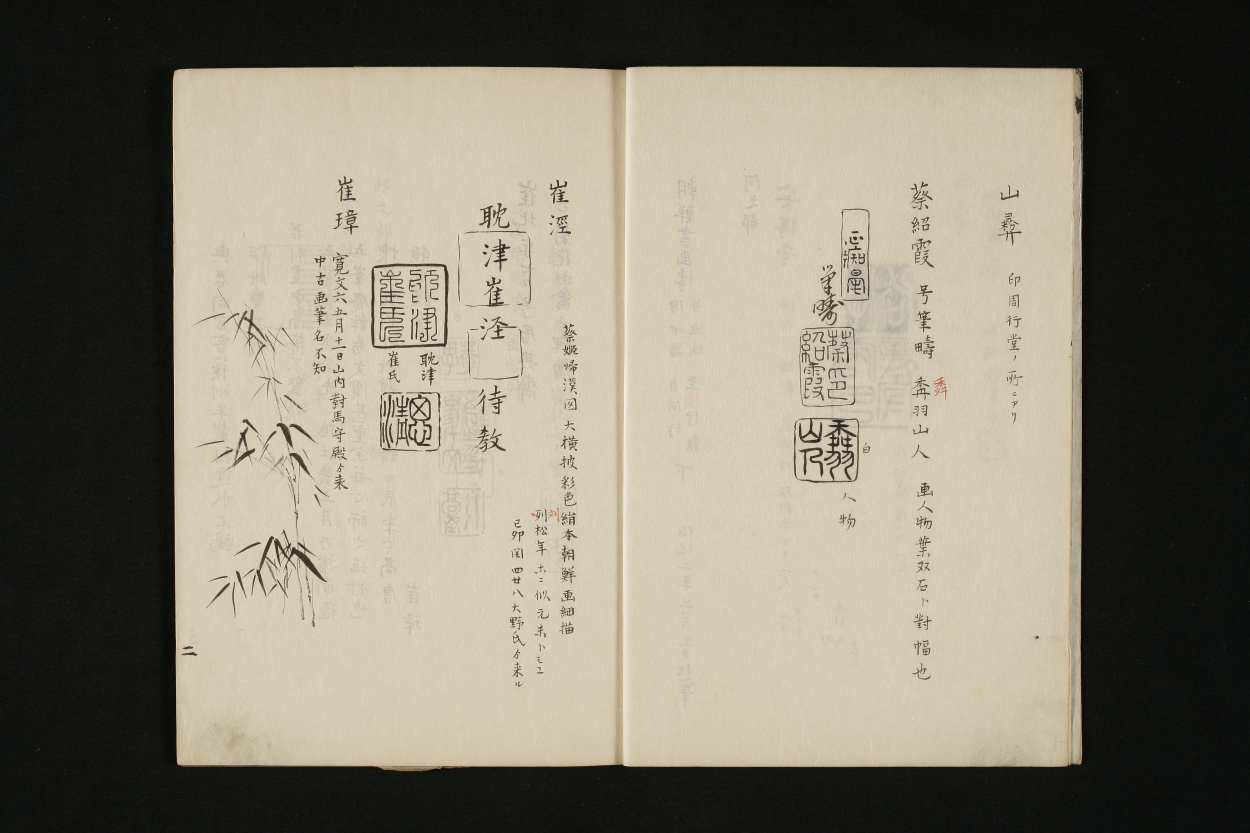 山彜 印周行堂ノ所ニアリ
蔡紹霞 号筆疇 羽山人 画人物葉双石ト對幅也
筆疇
蔡印紹霞
白
人物
崔涇
蔡姬帰漢図 大横披彩色絹本朝鮮画細描
列松年ホニ似元末トミユ
己卯閏四廿八大野氏ゟ来ル
耽津崔涇待教
耽津
崔氏
崔璋
寛文六五月十一日山内對馬守殿ゟ来
中古画筆名不知
二